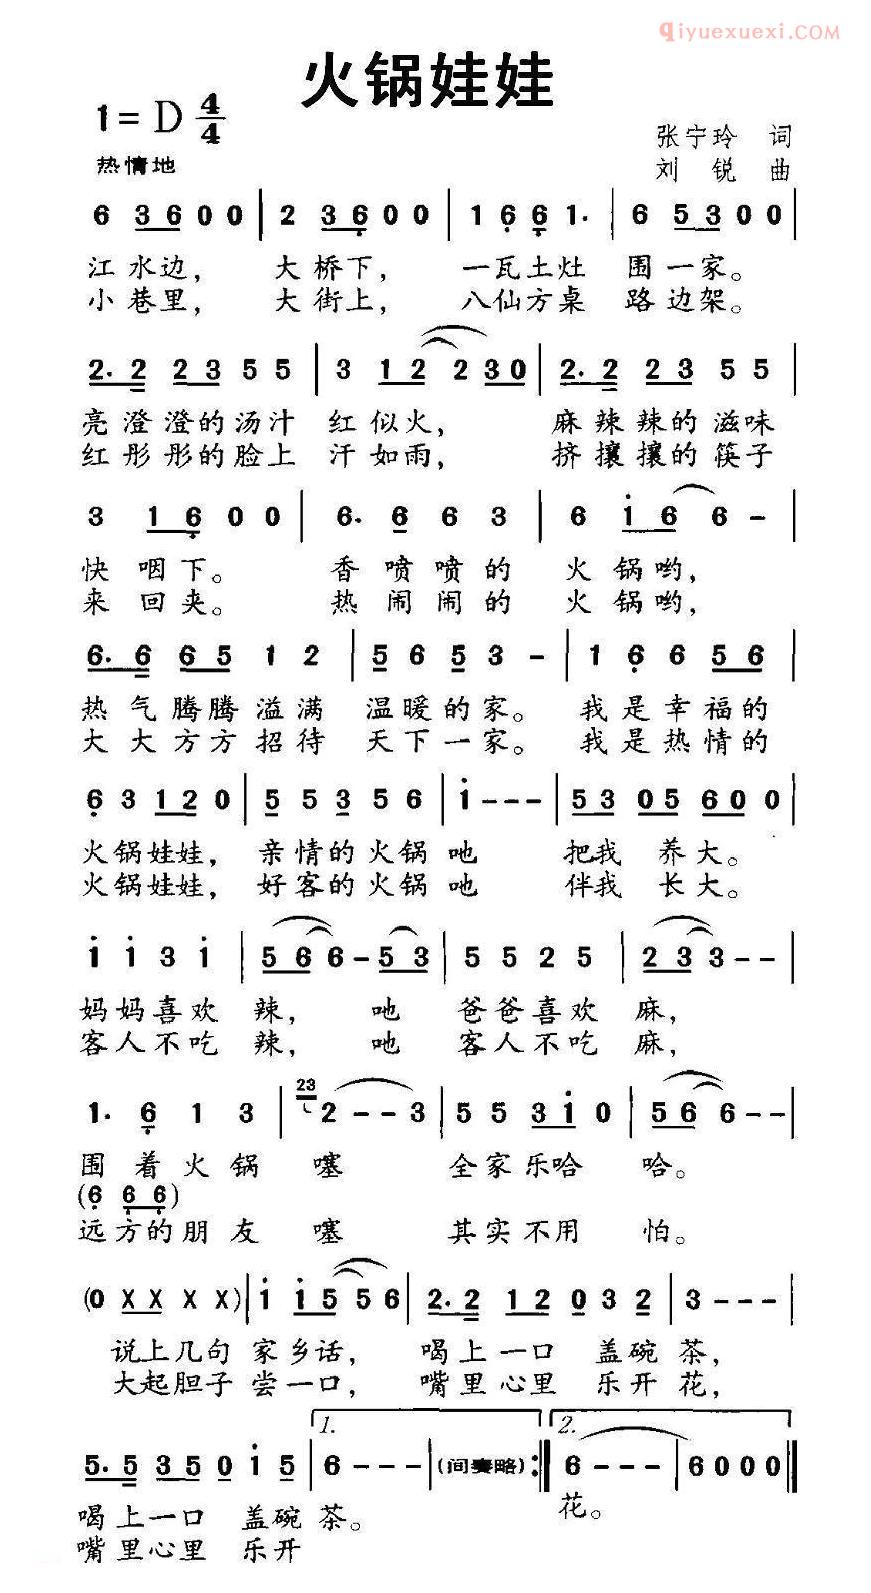 qiyuexuexi.COM
火锅娃娃
1=D 4/4
张宁玲 词
热情地
刘锐 曲
6 3 6 0 0 | 2 3 6 0 0 | 1 6 6 1· | 6 5 3 0 0 |
江水边, 大桥下, 一瓦土灶 围一家。
小巷里, 大街上, 八仙方桌 路边架。
2· 2 2 3 5 5 | 3 1 2 2 3 0 | 2· 2 2 3 5 5 |
亮澄澄的汤汁 红似火, 麻辣辣的滋味
红彤彤的脸上 汗如雨, 挤攘攘的筷子
3 1 6 0 0 | 6· 6 6 3 | 6 i 6 6 - |
快咽下。 香喷喷的 火锅哟,
来回夹。 热闹闹的 火锅哟,
6· 6 6 5 1 2 | 5 6 5 3 - | 1 6 6 5 6 |
热气腾腾溢满 温暖的家。 我是幸福的
大大方方招待 天下一家。 我是热情的
6 3 1 2 0 | 5 5 3 5 6 | i - - - | 5 3 0 5 6 0 0 |
火锅娃娃, 亲情的火锅吔 把我 养大。
火锅娃娃, 好客的火锅吔 伴我 长大。
i i 3 i | 5 6 6 - 5 3 | 5 5 2 5 | 2 3 3 - - |
妈妈喜欢 辣, 吔 爸爸喜欢 麻,
客人不吃 辣, 吔 客人不吃 麻,
1· 6 1 3 | 23 2 - - 3 | 5 5 3 i 0 | 5 6 6 - - |
围着火锅 噻 全家乐哈 哈。
(6 6 6)
远方的朋友 噻 其实不用 怕。
(0 X X X X) | i i 5 5 6 | 2· 2 1 2 0 3 2 | 3 - - - |
说上几句 家乡话, 喝上一口 盖碗茶,
大起胆子 尝一口, 嘴里心里 乐开花,
1. 2.
5· 5 3 5 0 i 5 | 6 - - - | (间奏略) :‖ 6 - - - | 6 0 0 0 ‖
喝上一口 盖碗茶。 花。
嘴里心里 乐开